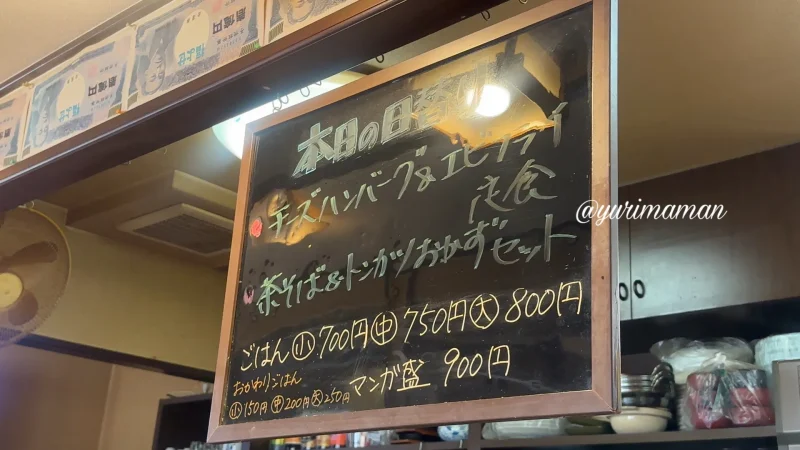 本日の日替り
チーズハンバーグ&エビフライ
定食
茶そば&トンカツおかずセット
ごはん 小 700円 中 750円 大 800円
おかわりごはん
小 150円 中 200円 大 250円
マンガ盛 900円
@yurimaman